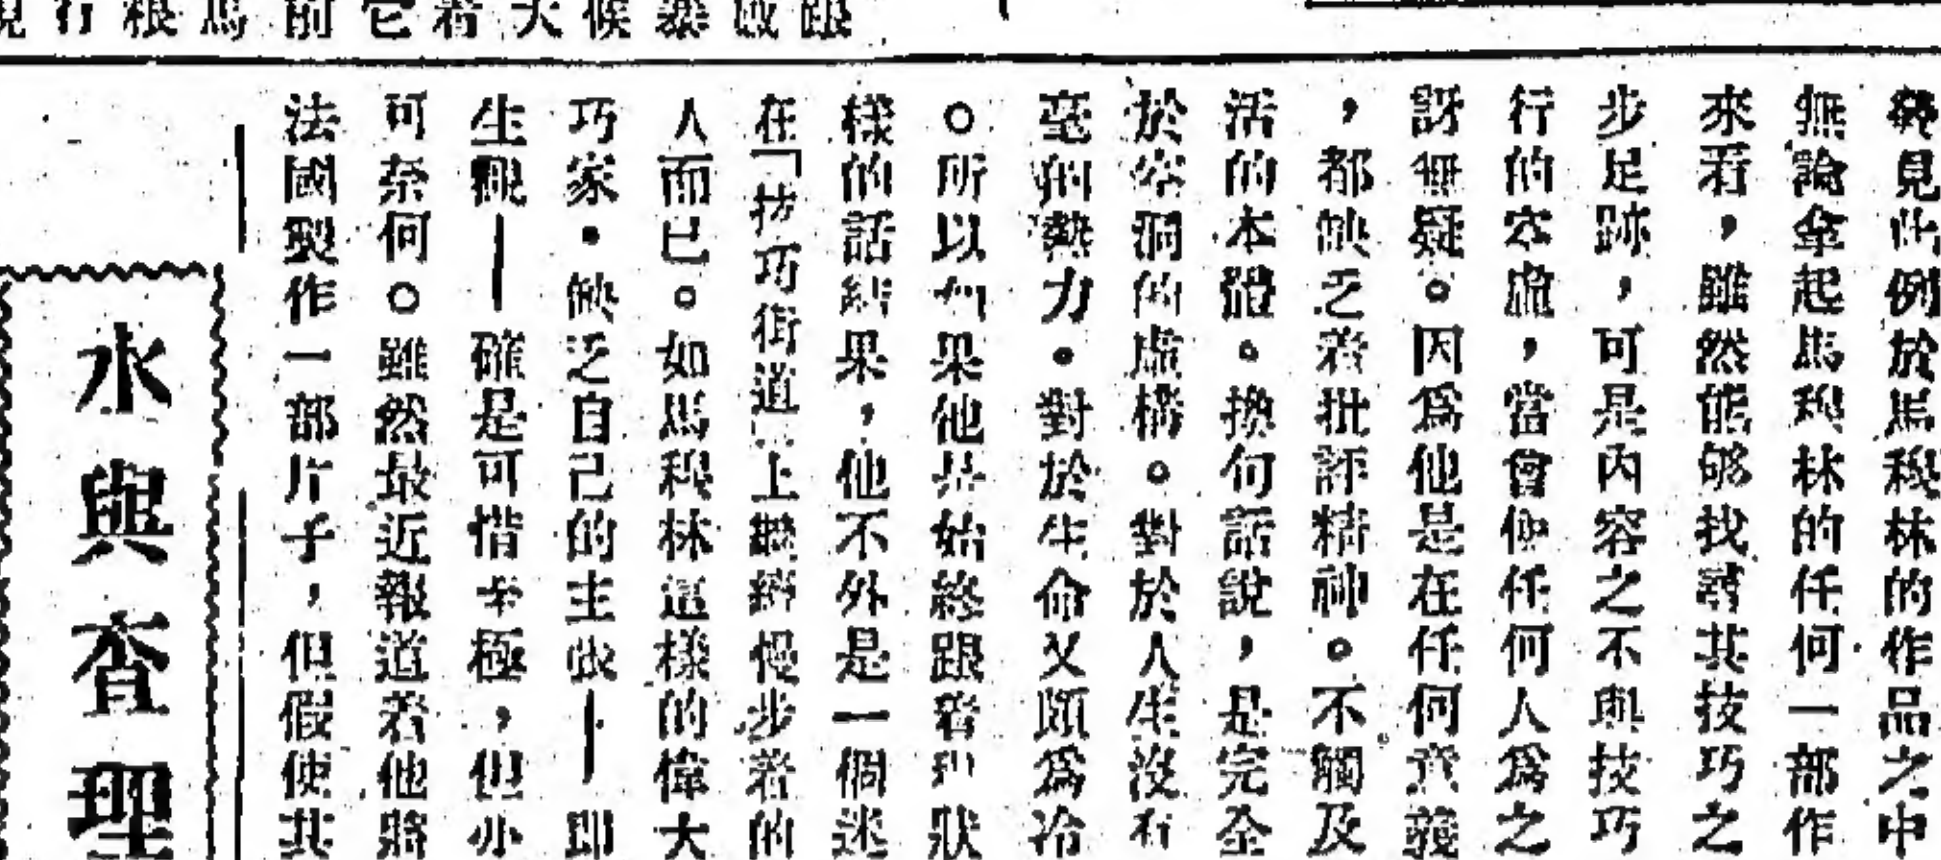 見此例於馬穆林的作品之中
無論拿起馬穆林的任何一部作
來看，雖然能够找尋其技巧之
步足跡，可是內容之不與技巧
行的空虛，當會使任何人爲之
訝無疑。因爲他是在任何意義
，都缺乏着批評精神。不觸及
活的本體。換句話說，是完全
於空洞的虛構。對於人生沒有
毫的熱力。對於生命又頗爲冷
。所以如果他是始終跟着現狀
樣的話結果，他不外是一個迷
在「技巧街道」上蹣跚慢步着的
人而已。如馬穆林這樣的偉大
巧家・缺乏自己的主張——即
生觀——確是可惜之極，但亦
可奈何。雖然最近報道着他將
法國製作一部片子，但假使其
水與查理